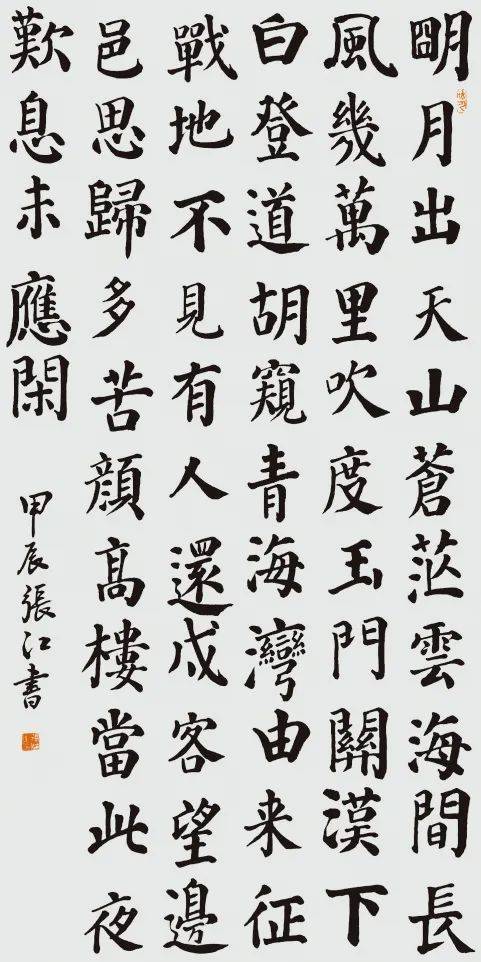 朙月出天山蒼茫雲海間長
風幾萬里吹度玉門關漢下
白登道胡窺青海灣由来征
戰地不見有人還戍客望邊
邑思歸多苦顔髙樓當此夜
歎息未應閑
甲辰張江書